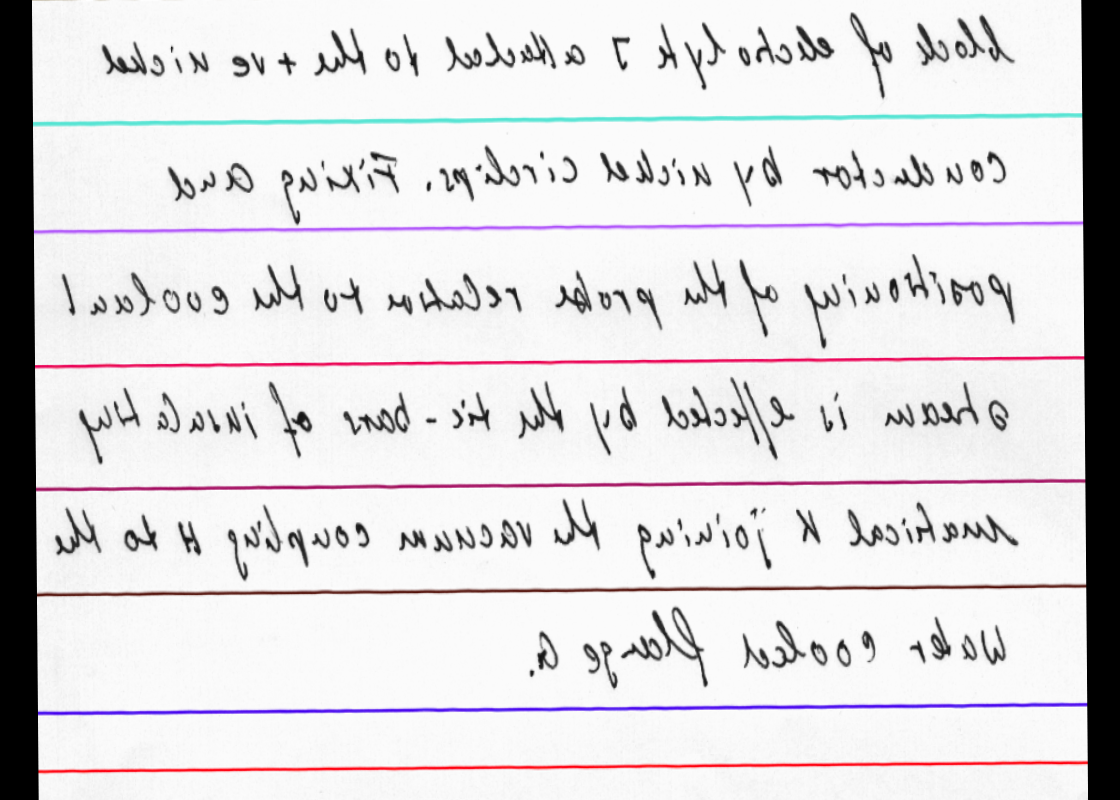 block of electrolyte J attached to the +ve nickel
conductor by nickel circlips. Fixing and
positioning of the probe relative to the coolant
stream is effected by the tie-bars of insulating
matirical K joining the vacuum coupling H to the
water cooled flange G.